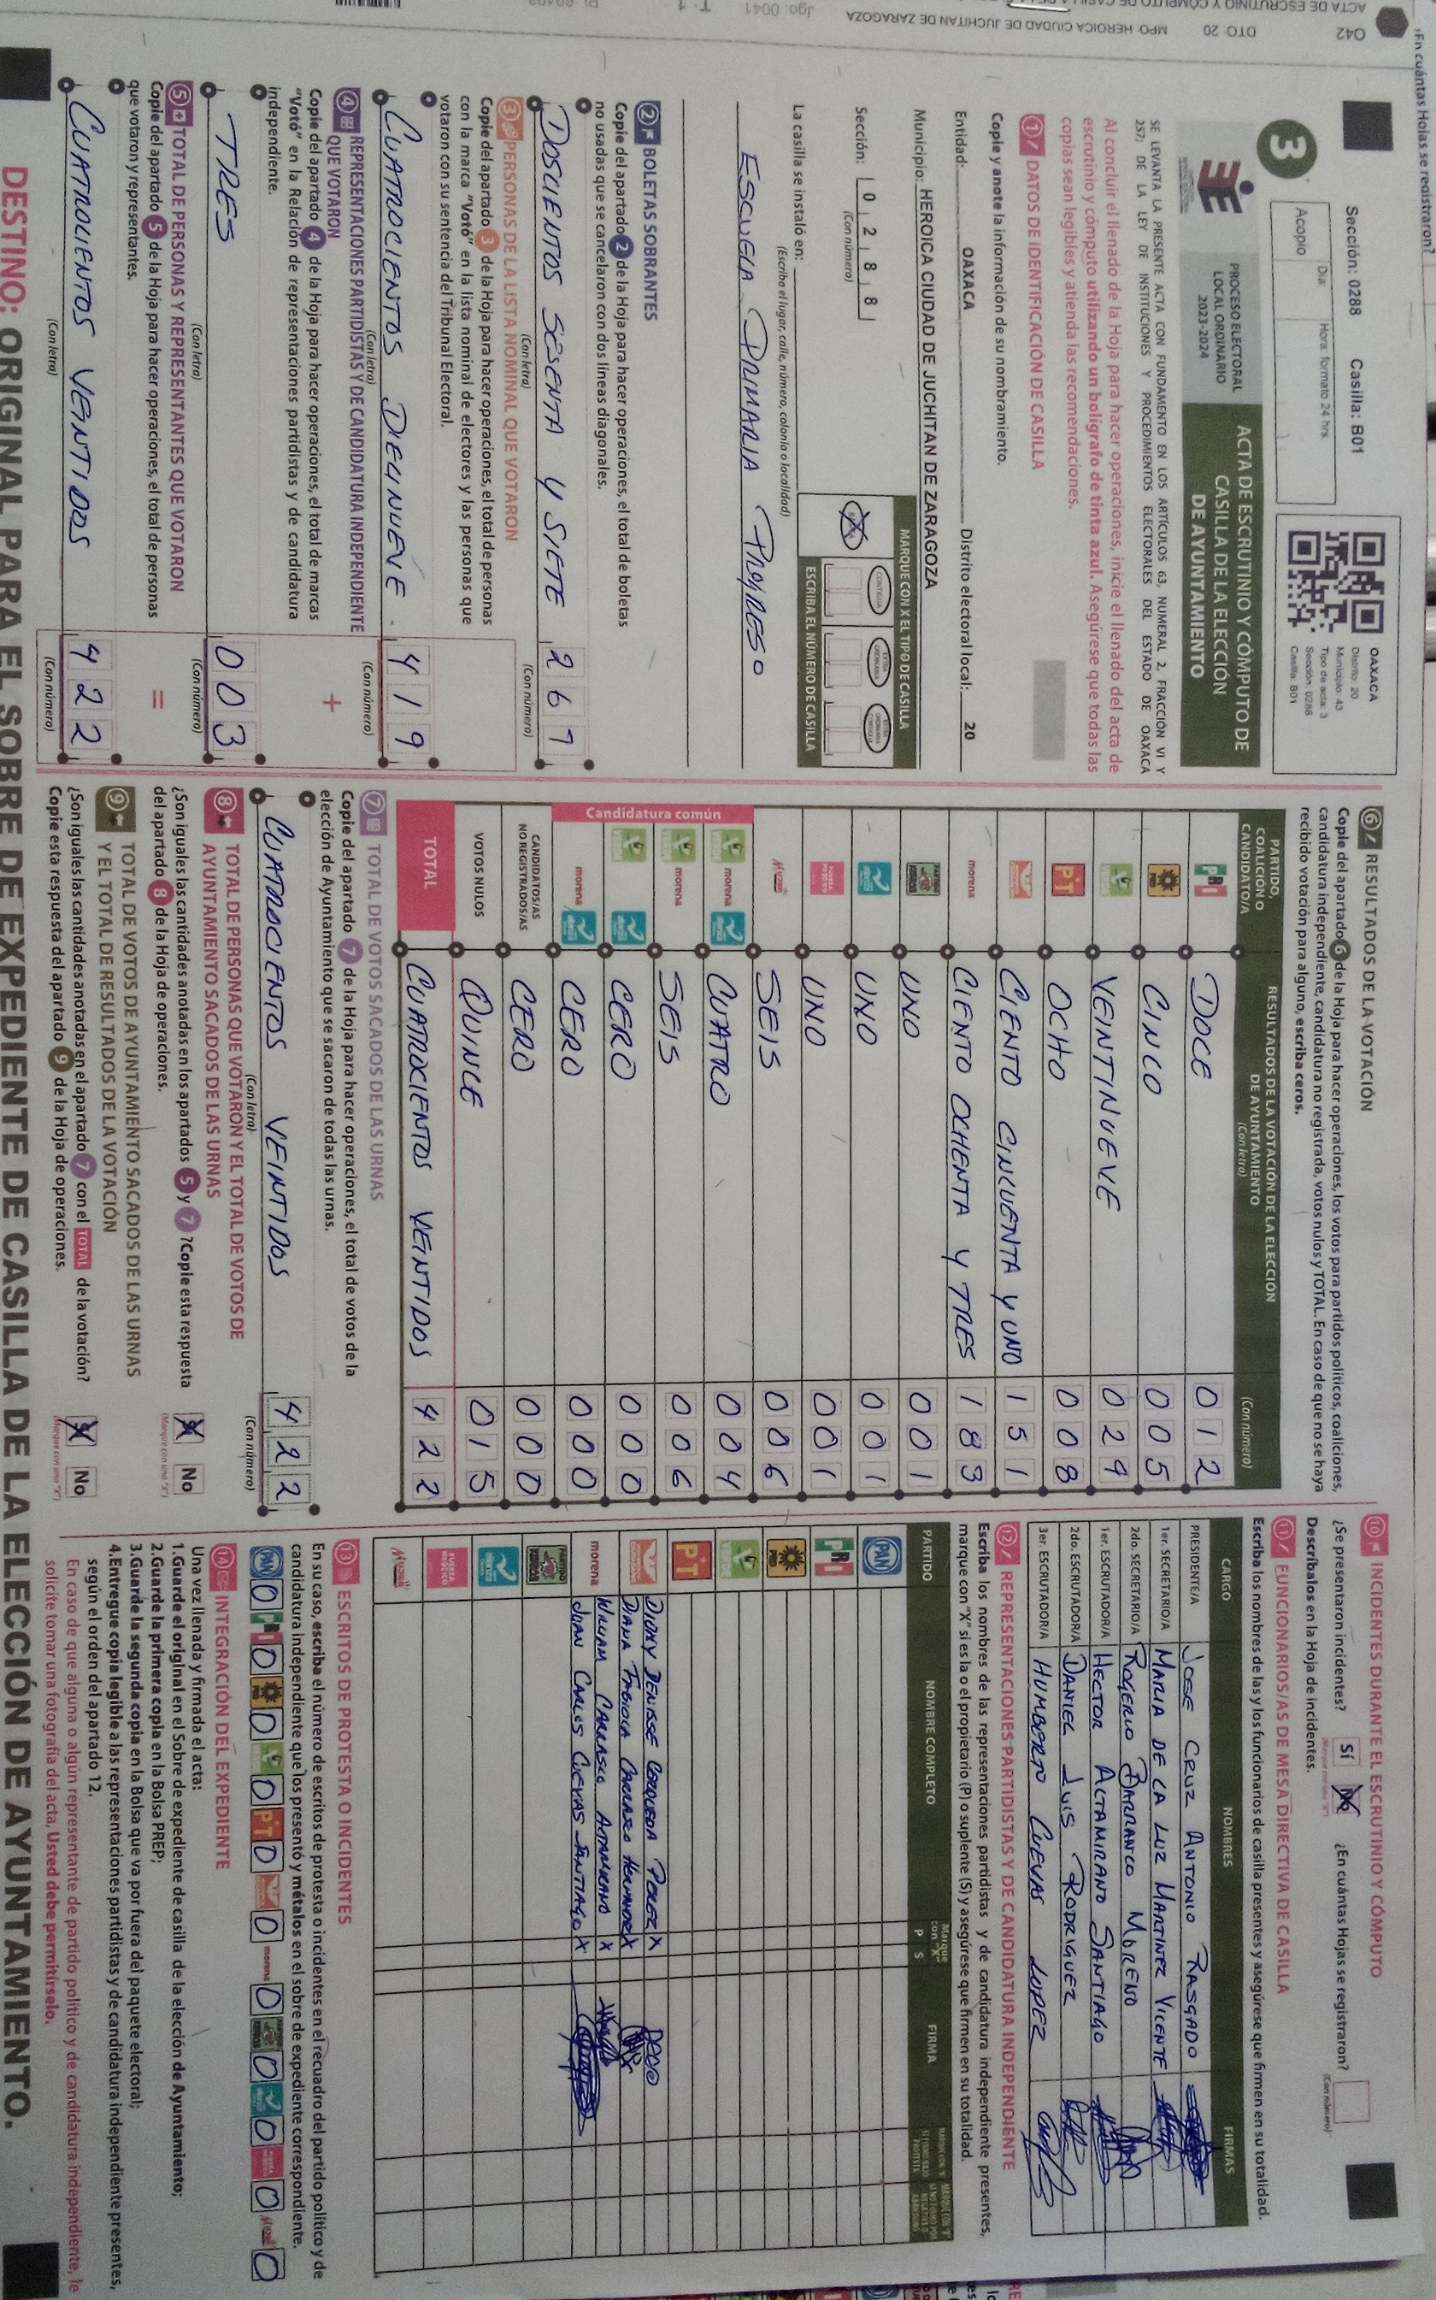 ¿En cuántas Hojas se registraron?
ACTA DE ESCRUTINIO Y CÓMPUTO DE
042 DTO: 20 MPO: HEROICA CIUDAD DE JUCHITAN DE ZARAGOZA Jgo: 0041 T: 1
Sección: 0288 Casilla: B01
Acopio
Día: Hora: formato 24 hrs.
OAXACA
Distrito: 20
Municipio: 43
Tipo de acta: 3
Sección: 0288
Casilla: B01
3
PROCESO ELECTORAL
LOCAL ORDINARIO
2023-2024
ACTA DE ESCRUTINIO Y CÓMPUTO DE
CASILLA DE LA ELECCIÓN
DE AYUNTAMIENTO
SE LEVANTA LA PRESENTE ACTA CON FUNDAMENTO EN LOS ARTÍCULOS 63, NUMERAL 2, FRACCIÓN VI Y
257; DE LA LEY DE INSTITUCIONES Y PROCEDIMIENTOS ELECTORALES DEL ESTADO DE OAXACA
Al concluir el llenado de la Hoja para hacer operaciones, inicie el llenado del acta de
escrutinio y cómputo utilizando un bolígrafo de tinta azul. Asegúrese que todas las
copias sean legibles y atienda las recomendaciones.
1 DATOS DE IDENTIFICACIÓN DE CASILLA
Copie y anote la información de su nombramiento.
Entidad: OAXACA Distrito electoral local: 20
Municipio: HEROICA CIUDAD DE JUCHITAN DE ZARAGOZA
Sección: 0 2 8 8
(Con número)
MARQUE CON X EL TIPO DE CASILLA
ESCRIBA EL NÚMERO DE CASILLA
La casilla se instaló en:
(Escriba el lugar, calle, número, colonia o localidad)
ESCUELA PRIMARIA PROGRESO
2 BOLETAS SOBRANTES
Copie del apartado 2 de la Hoja para hacer operaciones, el total de boletas
no usadas que se cancelaron con dos líneas diagonales.
DOSCIENTOS SESENTA Y SIETE 2 6 7
(Con letra) (Con número)
3 PERSONAS DE LA LISTA NOMINAL QUE VOTARON
Copie del apartado 3 de la Hoja para hacer operaciones, el total de personas
con la marca "Votó" en la lista nominal de electores y las personas que
votaron con su sentencia del Tribunal Electoral.
CUATROCIENTOS DIECINUEVE 4 1 9
(Con letra) (Con número)
4 REPRESENTACIONES PARTIDISTAS Y DE CANDIDATURA INDEPENDIENTE
QUE VOTARON
Copie del apartado 4 de la Hoja para hacer operaciones, el total de marcas
"Votó" en la Relación de representaciones partidistas y de candidatura
independiente.
+
TRES 0 0 3
(Con letra) (Con número)
5 TOTAL DE PERSONAS Y REPRESENTANTES QUE VOTARON
Copie del apartado 5 de la Hoja para hacer operaciones, el total de personas
que votaron y representantes.
=
CUATROCIENTOS VEINTIDOS 4 2 2
(Con letra) (Con número)
6 RESULTADOS DE LA VOTACIÓN
Copie del apartado 6 de la Hoja para hacer operaciones, los votos para partidos políticos, coaliciones,
candidatura independiente, candidatura no registrada, votos nulos y TOTAL. En caso de que no se haya
recibido votación para alguno, escriba ceros.
PARTIDO, COALICIÓN O CANDIDATO/A
RESULTADOS DE LA VOTACIÓN DE LA ELECCIÓN DE AYUNTAMIENTO
(Con letra) (Con número)
PRI DOCE 0 1 2
PRD CINCO 0 0 5
VERDE VEINTINUEVE 0 2 9
PT OCHO 0 0 8
CIENTO CINCUENTA Y UNO 1 5 1
morena CIENTO OCHENTA Y TRES 1 8 3
UNO 0 0 1
UNO 0 0 1
FUERZA UNO 0 0 1
Mujer SEIS 0 0 6
Candidatura común
VERDE morena CUATRO 0 0 4
VERDE morena SEIS 0 0 6
VERDE CERO 0 0 0
morena CERO 0 0 0
CANDIDATOS/AS NO REGISTRADOS/AS CERO 0 0 0
VOTOS NULOS QUINCE 0 1 5
TOTAL CUATROCIENTOS VEINTIDOS 4 2 2
7 TOTAL DE VOTOS SACADOS DE LAS URNAS
Copie del apartado 7 de la Hoja para hacer operaciones, el total de votos de la
elección de Ayuntamiento que se sacaron de todas las urnas.
CUATROCIENTOS VEINTIDOS 4 2 2
(Con letra) (Con número)
8 TOTAL DE PERSONAS QUE VOTARON Y EL TOTAL DE VOTOS DE
AYUNTAMIENTO SACADOS DE LAS URNAS
¿Son iguales las cantidades anotadas en los apartados 5 y 7 ? Copie esta respuesta
del apartado 8 de la Hoja de operaciones.
Sí No
9 TOTAL DE VOTOS DE AYUNTAMIENTO SACADOS DE LAS URNAS
Y EL TOTAL DE RESULTADOS DE LA VOTACIÓN
¿Son iguales las cantidades anotadas en el apartado 7 con el TOTAL de la votación?
Copie esta respuesta del apartado 9 de la Hoja de operaciones.
Sí No
10 INCIDENTES DURANTE EL ESCRUTINIO Y CÓMPUTO
¿Se presentaron incidentes? Sí No ¿En cuántas Hojas se registraron?
(Con número)
Descríbalos en la Hoja de incidentes.
11 FUNCIONARIOS/AS DE MESA DIRECTIVA DE CASILLA
Escriba los nombres de las y los funcionarios de casilla presentes y asegúrese que firmen en su totalidad.
CARGO NOMBRES FIRMAS
PRESIDENTE/A JOSE CRUZ ANTONIO RASGADO
1er. SECRETARIO/A MARIA DE LA LUZ MARTINEZ VICENTE
2do. SECRETARIO/A ROGERIO BARRANCO MORENO
1er. ESCRUTADOR/A HECTOR ALTAMIRANO SANTIAGO
2do. ESCRUTADOR/A DANIEL LUIS RODRIGUEZ
3er. ESCRUTADOR/A HUMBERTO CUEVAS LOPEZ
12 REPRESENTACIONES PARTIDISTAS Y DE CANDIDATURA INDEPENDIENTE
Escriba los nombres de las representaciones partidistas y de candidatura independiente presentes,
marque con "X" si es la o el propietario (P) o suplente (S) y asegúrese que firmen en su totalidad.
PARTIDO NOMBRE COMPLETO Marque con "X" P S FIRMA
PAN
PRI
PRD
VERDE
PT
DIOXY DENISSE CERQUEDA PEREZ X
DIANA FABIOLA CARRASCO HERNANDEZ X
morena WILLIAM CARRASCO ALTAMIRANO X
JUAN CARLOS CUEVAS SANTIAGO X
FUERZA
Mujer
13 ESCRITOS DE PROTESTA O INCIDENTES
En su caso, escriba el número de escritos de protesta o incidentes en el recuadro del partido político y de
candidatura independiente que los presentó y métalos en el sobre de expediente correspondiente.
PAN 0 PRI 0 PRD 0 VERDE 0 PT 0 0 morena 0 0 0 0 0
14 INTEGRACIÓN DEL EXPEDIENTE
Una vez llenada y firmada el acta:
1.Guarde el original en el Sobre de expediente de casilla de la elección de Ayuntamiento;
2.Guarde la primera copia en la Bolsa PREP;
3.Guarde la segunda copia en la Bolsa que va por fuera del paquete electoral;
4.Entregue copia legible a las representaciones partidistas y de candidatura independiente presentes,
según el orden del apartado 12.
En caso de que alguna o algún representante de partido político y de candidatura independiente, le
solicite tomar una fotografía del acta, Usted debe permitírselo.
DESTINO: ORIGINAL PARA EL SOBRE DE EXPEDIENTE DE CASILLA DE LA ELECCIÓN DE AYUNTAMIENTO.